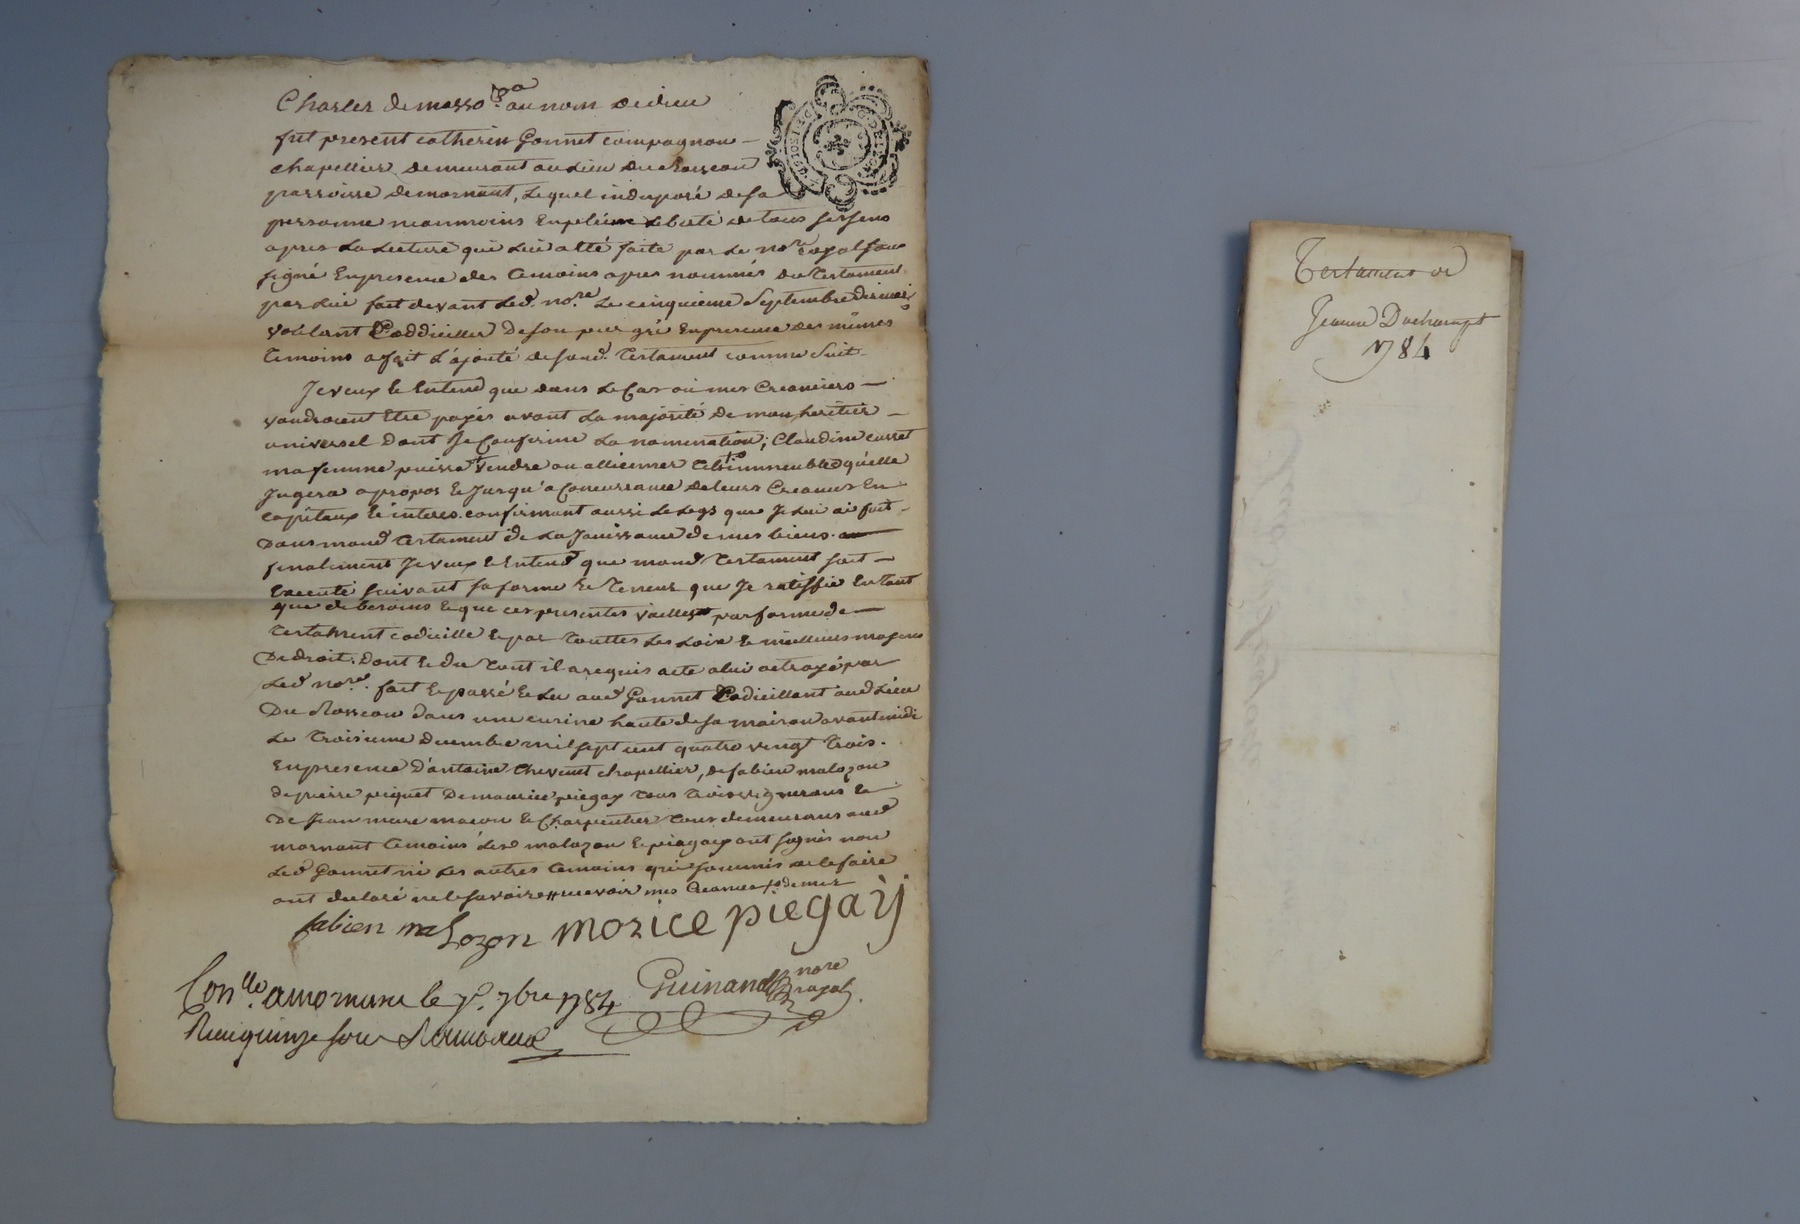 Charles de masso. au nom de dieu
fut present catherin Gonnet compagnon
chapellier demeurant au Lieu du Rosseau
parroisse de mornant, Lequel indisposé de sa
personne neanmoins en pleine Liberté de tous ses sens
apres La Lecture qui Lui a été faite par Le no.re royal sous
signé En presence des temoins apres nommés du testament
par Lui fait devant Led. no.re Le cinquieme Septembre
voulant Coddiciller de son pur gré En presence des mêmes
temoins a fait L'ajouté de sond. testament comme suit.
Je veux et Entend que dans Le Cas où mes Creanciers
voudroient Etre payés avant La majorité de mon heritier
universel dont Je Confirme La nomination; Claudine curret
ma femme puisse vendre ou allienner tels immeubles qu'elle
Jugera apropos et Jusqu'a Concurrance de leurs Creances En
capitaux et interes. confirmant aussi Le Legs que Je Lui ai fait
dans mond testament de La Jouissance de mes biens.
finalement Je veux et Entend que mond testament soit
Executé suivant sa forme et teneur que Je ratiffie En tant
que de besoins et que ces presentes vaillent par forme de
testament codicille et par touttes Les Loix et meilleurs moyens
de droit. dont et du tout il a requis acte a lui octroyé par
Led no.re. fait et passé et Lu aud Gonnet Codicillant aud Lieu
Du Rosseau dans une cuisine haute de sa maison avant midi
Le troisieme decembre mil sept cent quatre vingt trois.
En presence d'antoine thevenet chapellier, de fabien malozon
de pierre piquet de maurice piegay tous trois vignerons et
de Jean marc macon et Charpentier tous demeurans aud
mornant temoins Lesd malozon et piegay ont signés non
Led Gonnet ni Les autres temoins qui sommés de le faire
ont declaré ne le savoir # recevoir mes Creances de mes
fabien malozon morice piegaÿ
Guinand no.re royal
Con.llé a mornant le 7. 7bre 1784
Reçu quinze sous
Testament de
Jeanne Duchampt
1784